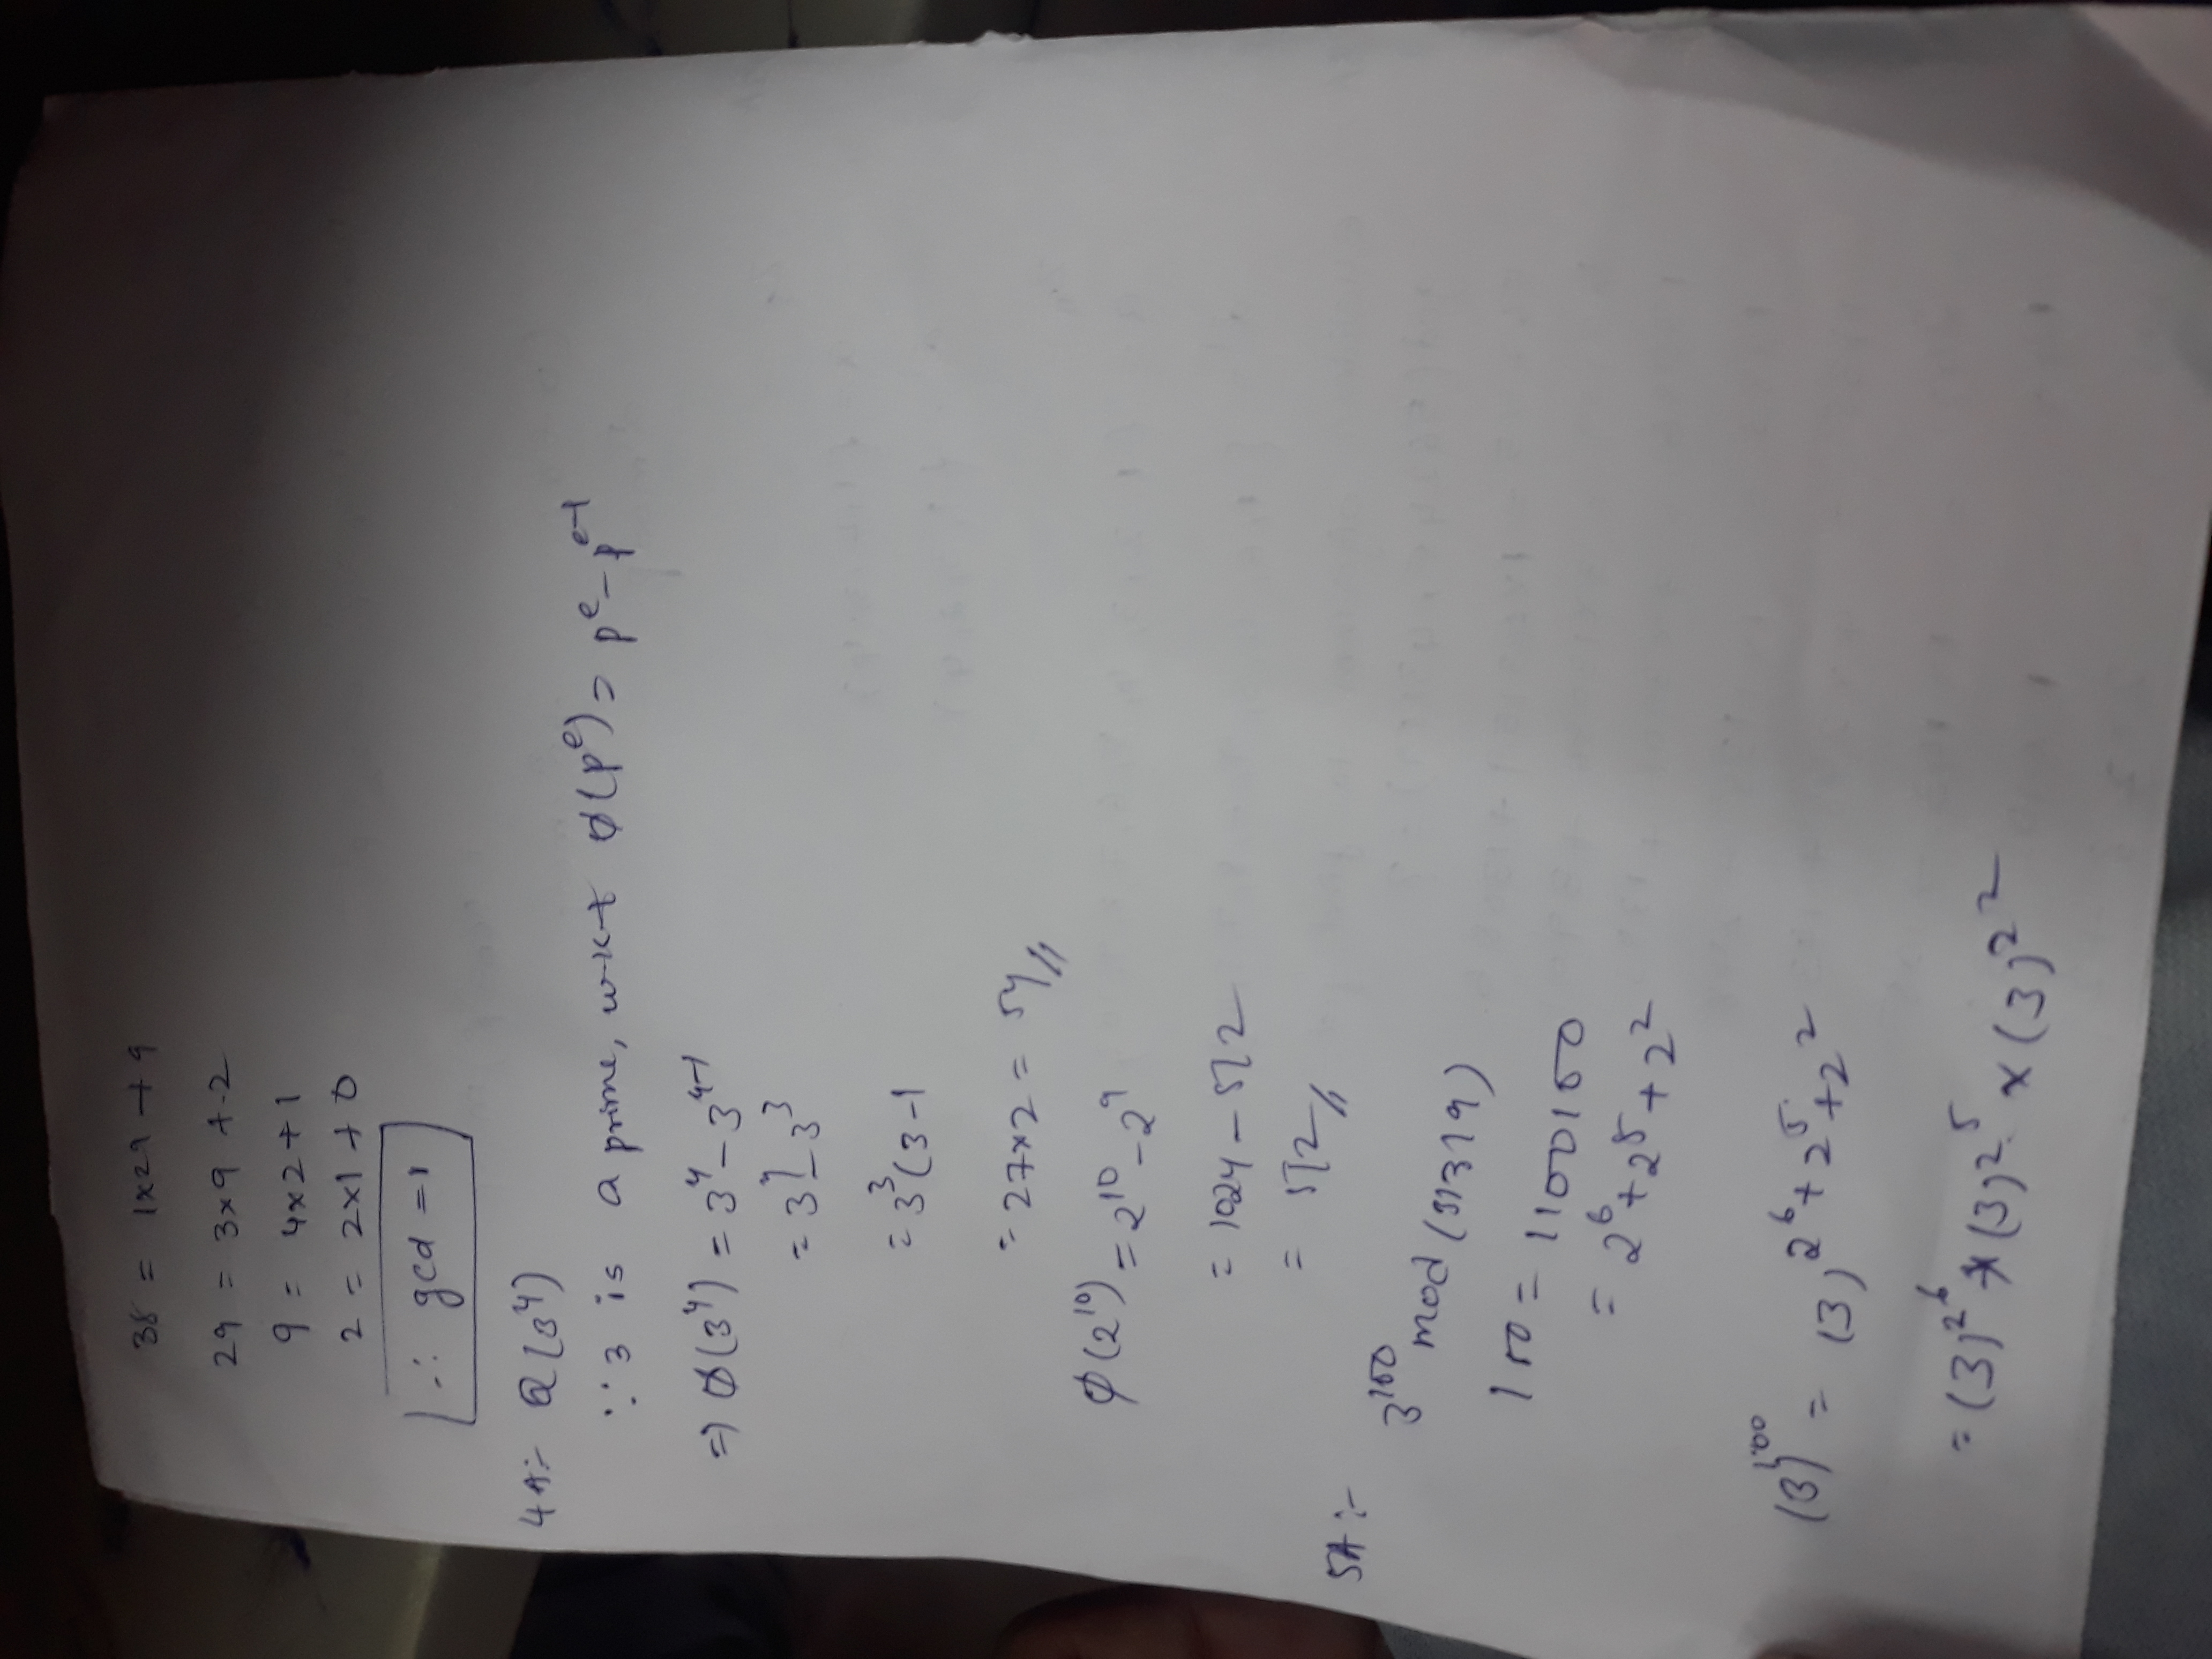 38 = 1x29 + 9
29 = 3x9 + 2
9 = 4x2 + 1
2 = 2x1 + 0
∴ gcd = 1
4A:- Q(3⁴)
∵ 3 is a prime, wkt φ(pᵉ) = pᵉ - pᵉ⁻¹
=> φ(3⁴) = 3⁴ - 3⁴⁻¹
= 3⁴ - 3³
= 3³(3-1
= 27x2 = 54//
φ(2¹⁰) = 2¹⁰ - 2⁹
= 1024 - 512
= 512//
5A:-
3¹⁰⁰ mod (31319)
100 = 1100100
= 2⁶ + 2⁵ + 2²
(3)¹⁰⁰ = (3)^2⁶+2⁵+2²
= (3)^2⁶ x (3)^2⁵ x (3)^2²